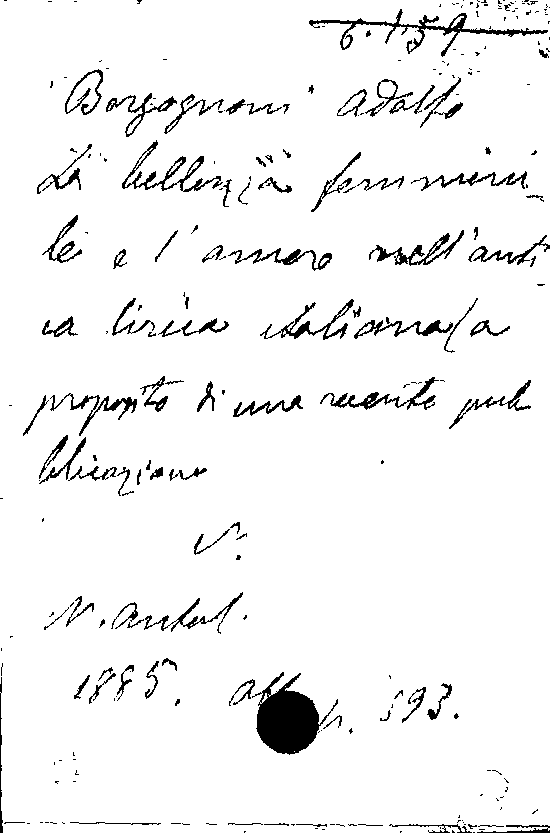 6.159
Borgognoni Adolfo
La bellezza femmini_
le e l'amore nell'anti_
ca lirica italiana (a
proposito di una recente pub
blicazione
V.
N. Antol.
1885. p. 593.